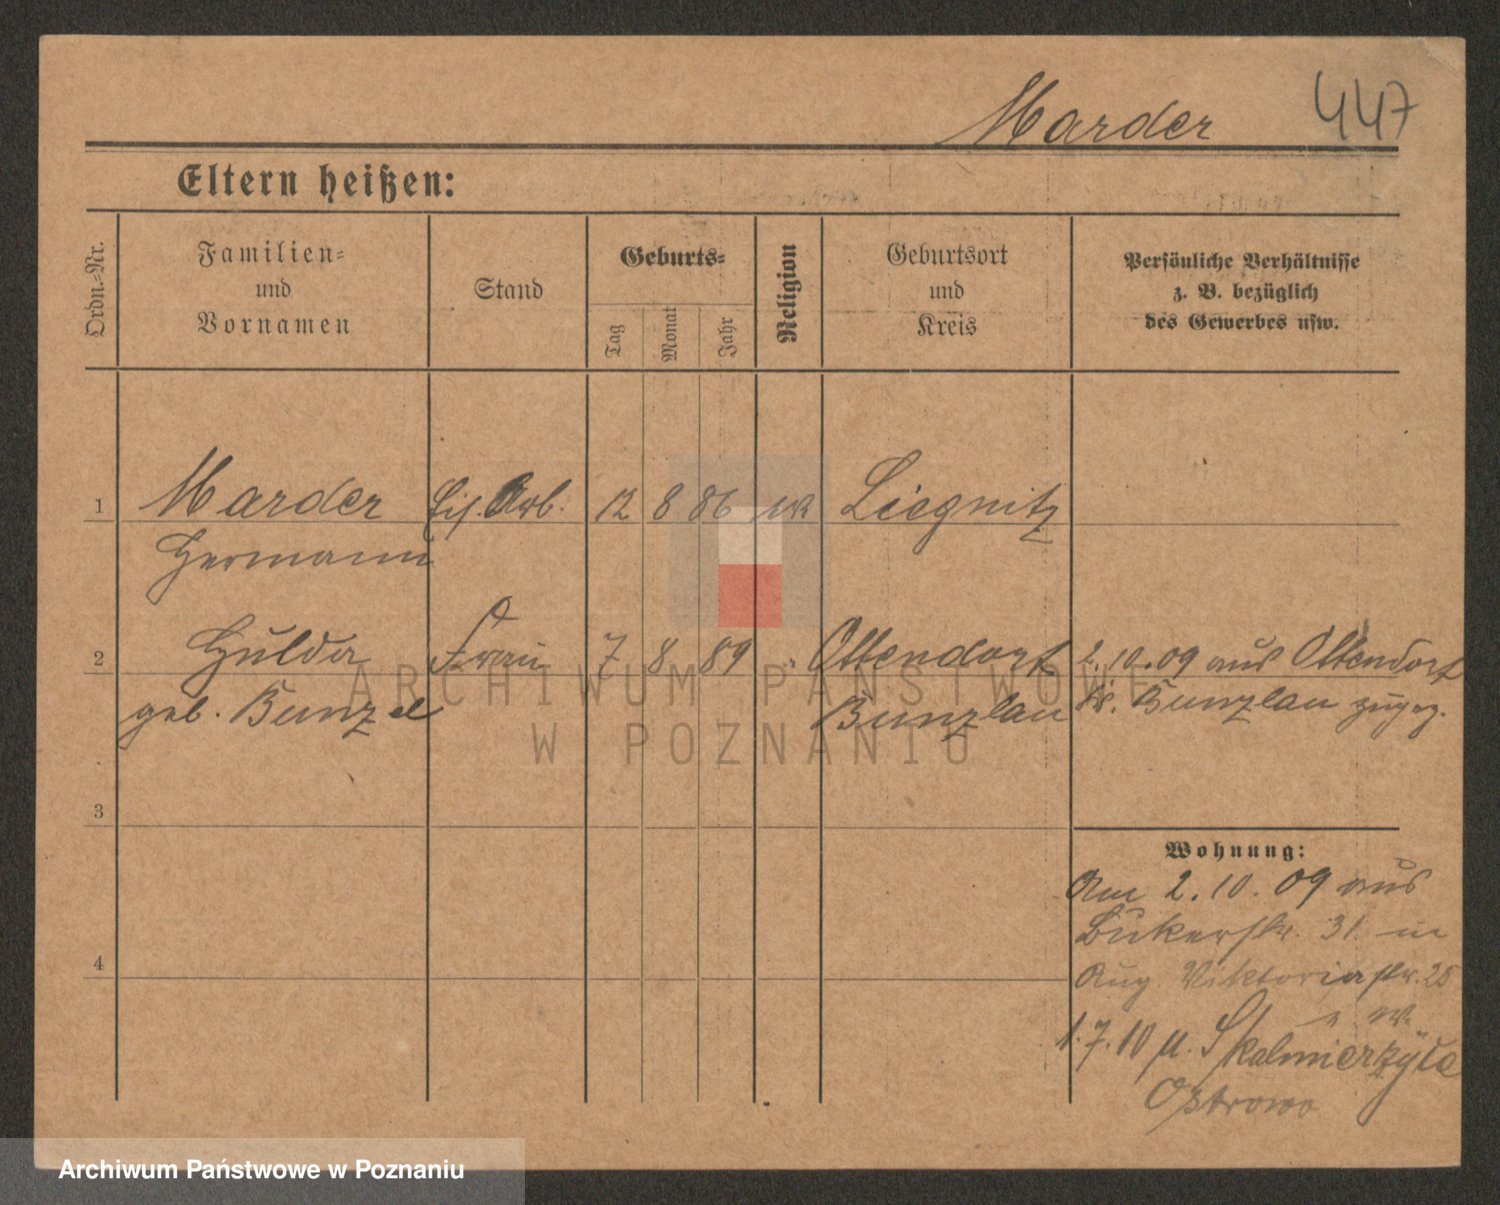 Marder 447
Eltern heißen:
Ordn.-Nr.
Familien-
und
Vornamen
Stand
Geburts-
Tag
Monat
Jahr
Religion
Geburtsort
und
Kreis
Persönliche Verhältnisse
z. B. bezüglich
des Gewerbes usw.
1 Marder Eis. Arb. 12 8 86 Liegnitz
Hermann
2 Hulda Frau 7 8 89 " Ottendorf 2.10.09 aus Ottendorf
geb. Bunzel Bunzlau Kr. Bunzlau zugez.
3
Wohnung:
Am 2.10.09 aus
Bukerstr. 31 in
4
Aug. Viktoriastr. 25
1.7.10 n. Skalmierzyce
Ostrowo
ARCHIWUM PAŃSTWOWE
W POZNANIU
Archiwum Państwowe w Poznaniu